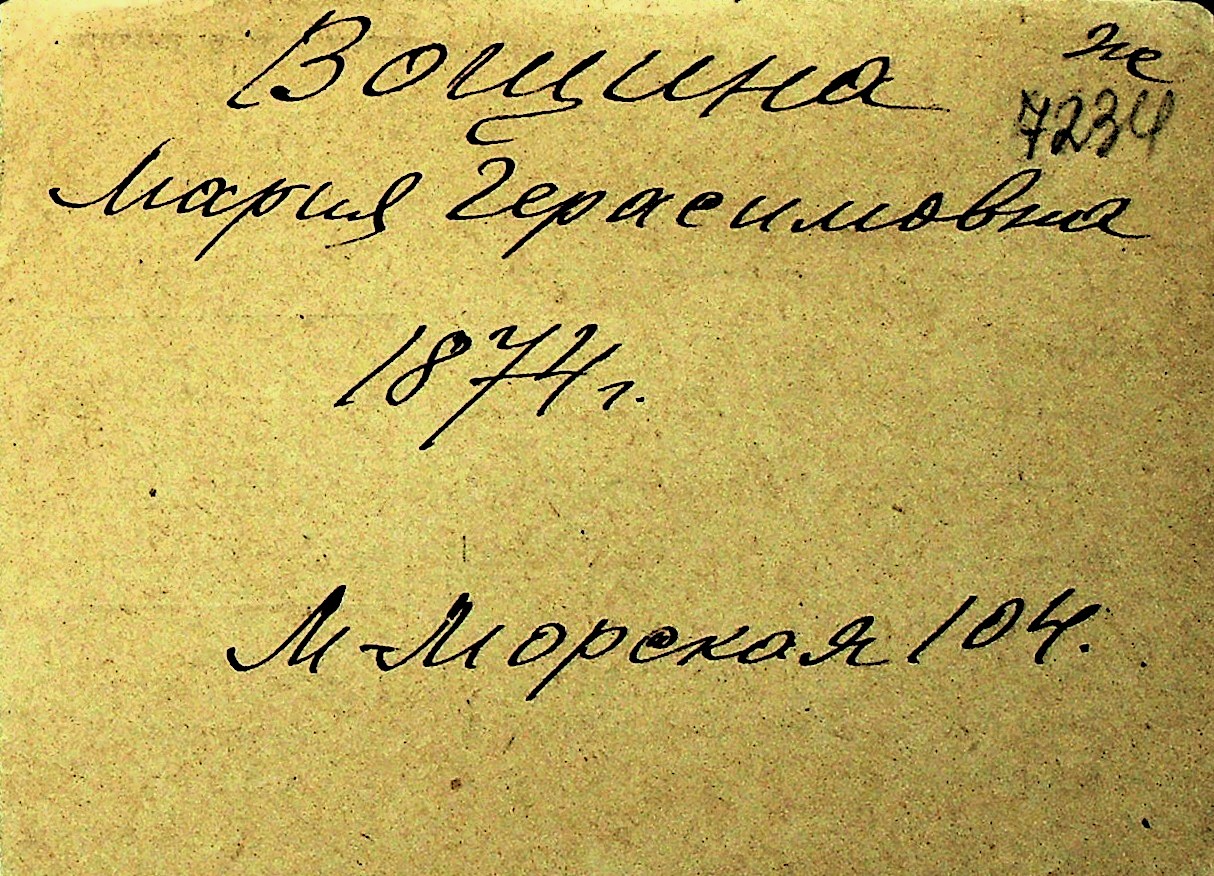 Вощина
же
7234
Мария Герасимовна
1874 г.
М-Морская 104.